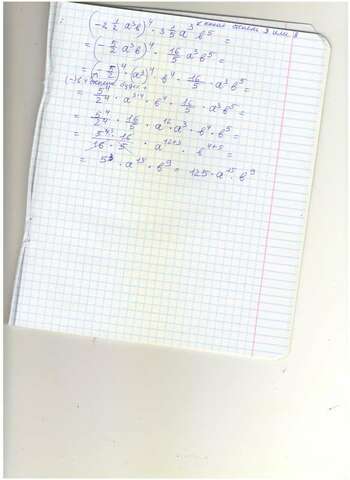 (-2 1/2 a³b)⁴ · 3 1/5 a³ b⁵ =
= (- 5/2 a³b)⁴ · 16/5 a³ b⁵ =
= (- 5/2)⁴ · (a³)⁴ · b⁴ · 16/5 · a³ b⁵ =
= 5⁴/2⁴ · a³·⁴ · b⁴ · 16/5 · a³ · b⁵ =
= 5⁴/2⁴ · 16/5 · a¹² · a³ · b⁴ · b⁵ =
= 5⁴/16 · 16/5 · a¹²⁺³ · b⁴⁺⁵ =
= 5³ · a¹⁵ · b⁹ = 125 · a¹⁵ · b⁹